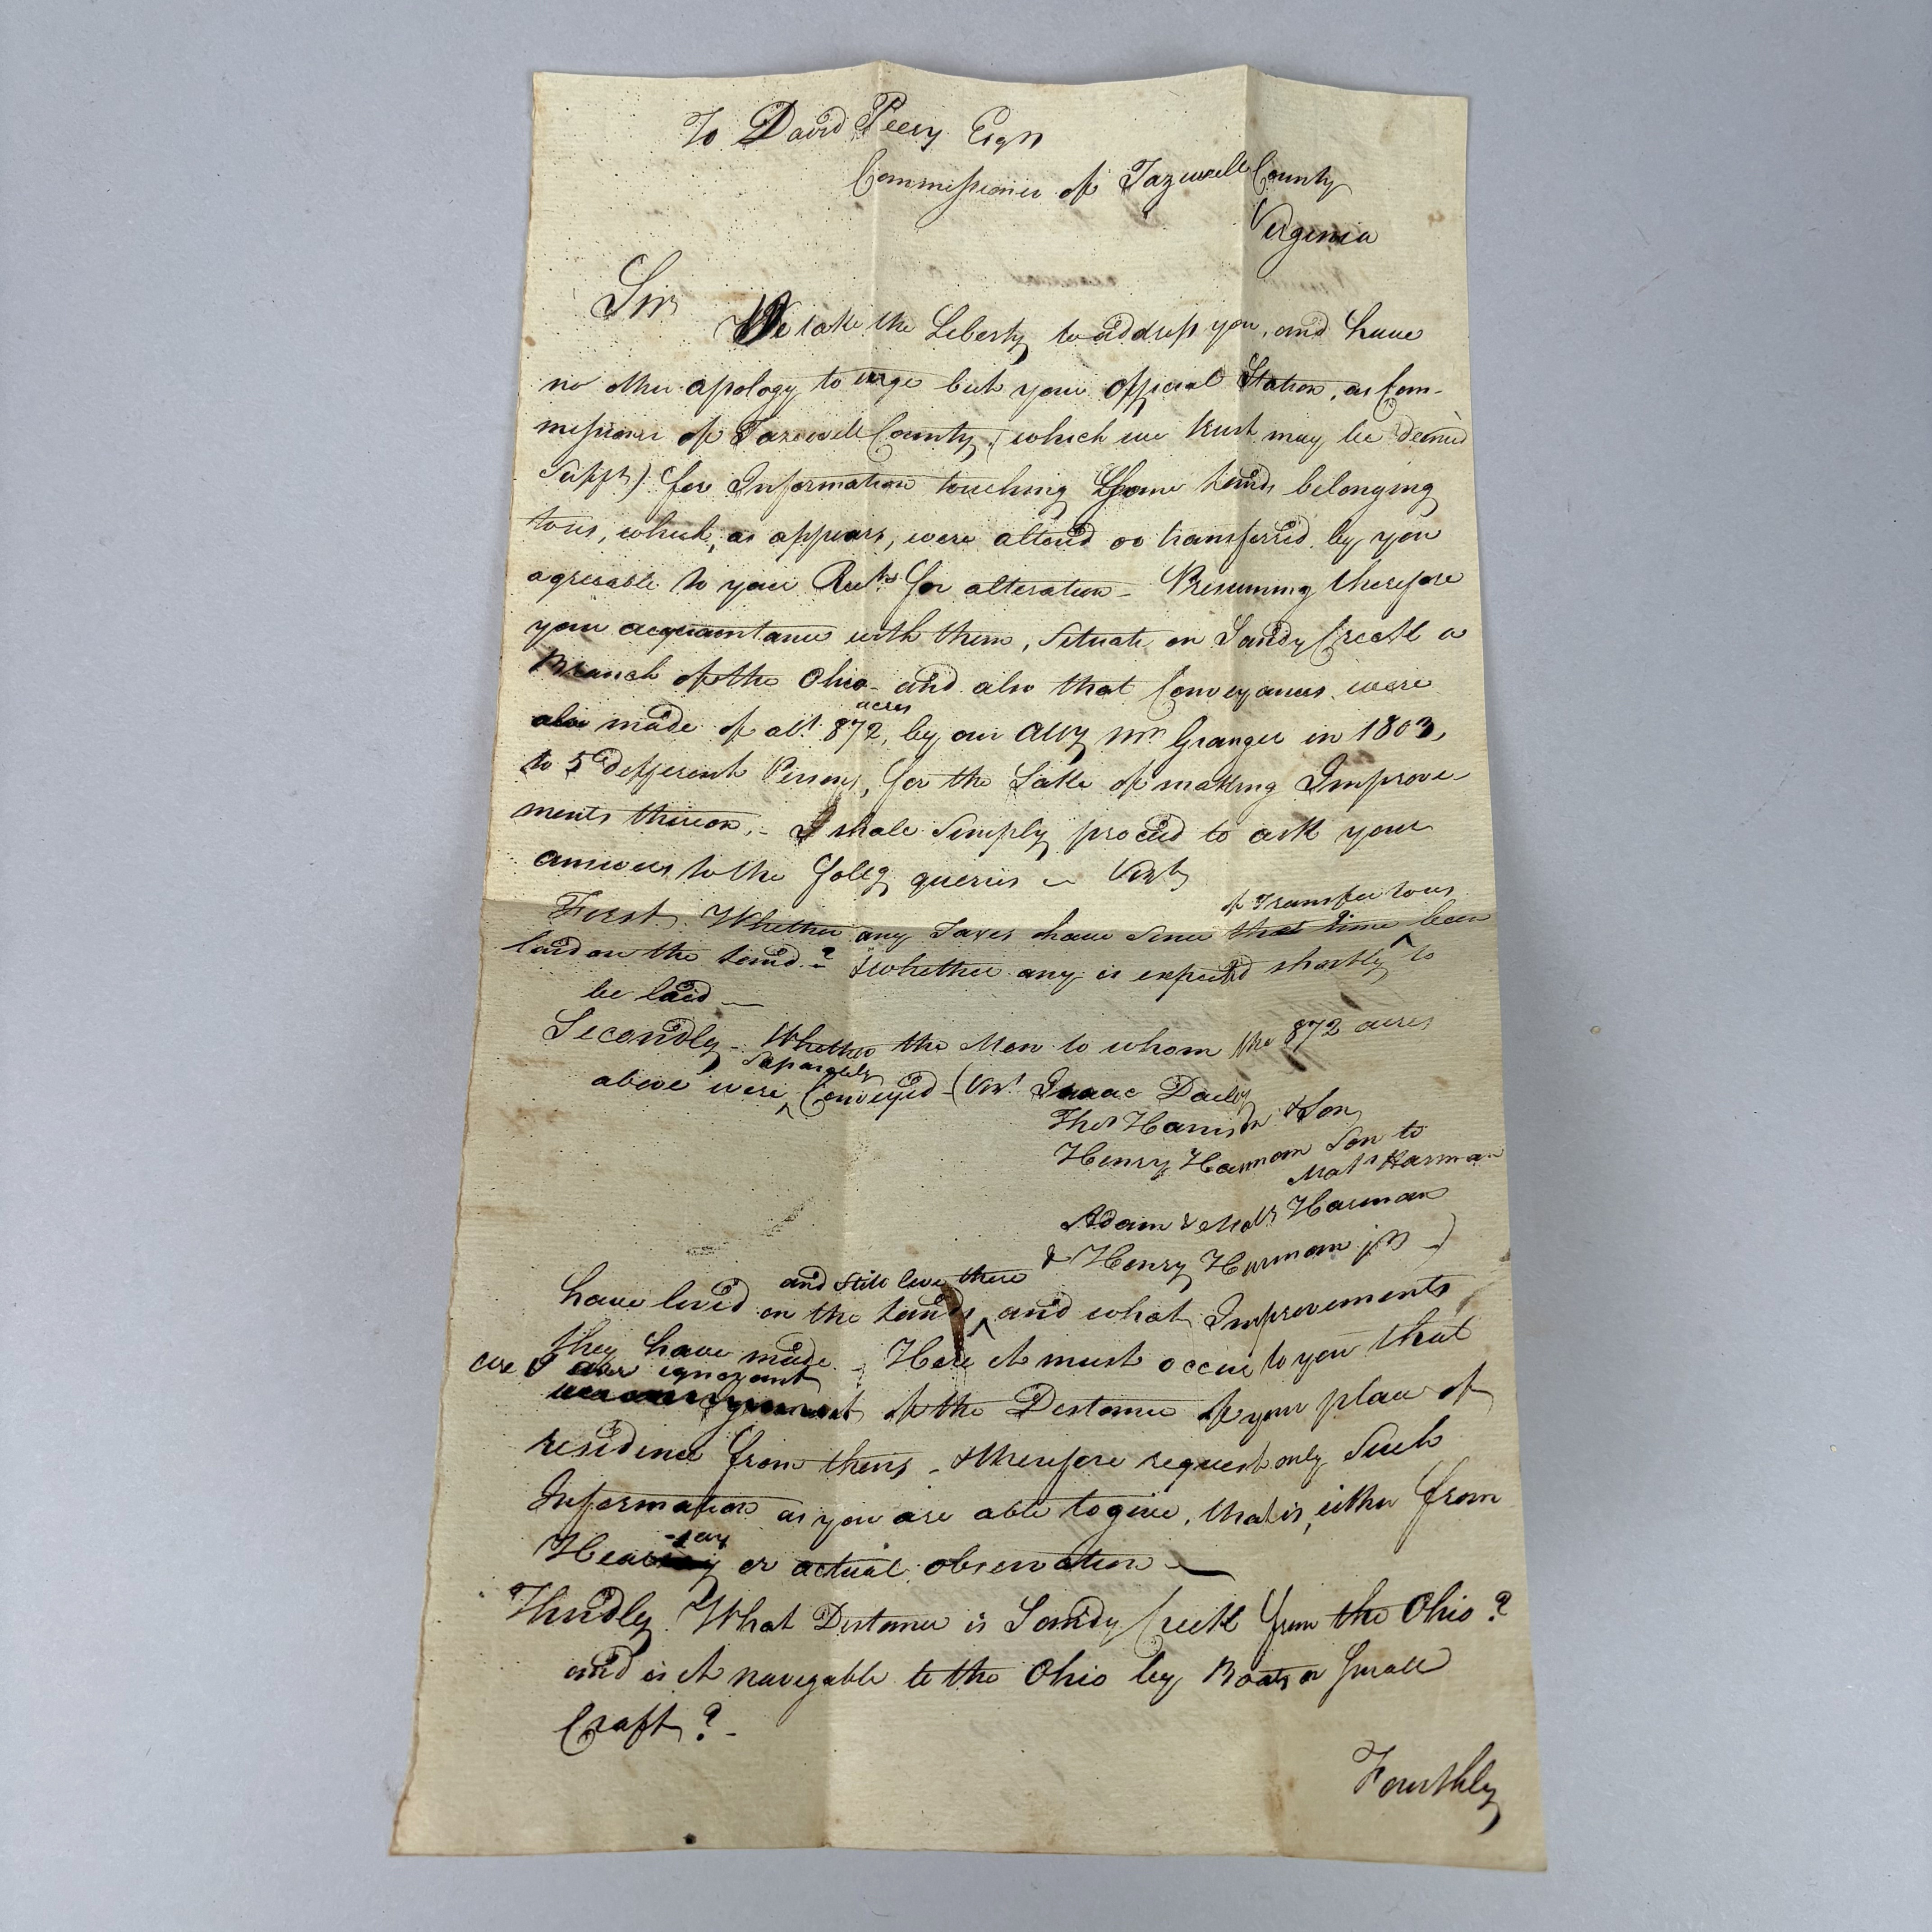 To David Peery Esqr
Commissioner of Tazewell County
Virginia
Sir
We take the Liberty to address you, and have
no other apology to urge but your official Station, as Com-
missioner of Tazewell County, (which we trust may be deem'd
Sufft) for Information touching Some Lands belonging
to us, which, as appears, were alter'd or transferrid by you
agreeable to your Rects for alteration - Presuming therefore
your acquaintance with them, Situate on Sandy Creek a
Branch of the Ohio - and also that Conveyances were
acres
made of abt 872, by our Atty Mr Granger in 1803,
to 5 different Persons, for the Sake of making Improve-
ments thereon, - I shall Simply proceed to ask your
answers to the follg queries - Vizt
of Transfer to us
First Whether any Taxes have Since that time been
laid on the Land? - & whether any is expected shortly to
be laid -
Secondly - Whether the Men to whom the 872 acres
Separately
above were Conveyed - (Vizt Isaac Daily
Thos Harrison & Son
Henry Harmom Son to
Mats Harman
Adam & Mats Harman
& Henry Harmom jr -)
and still live there
have lived on the Lands, and what Improvements
they have made - Here it must occur to you that
we are ignorant
of the Distance of your place of
residence from theirs - & therefore request only Such
Information as you are able to give, that is, either from
-say
Hear or actual observation -
Thirdly What Distance is Sandy Creek from the Ohio?
and is it navigable to the Ohio by Boats or Small
Craft? -
Fourthly